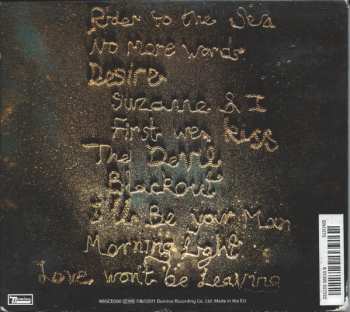 Rider to the Sea
No More Words
Desire
Suzanne & I
First we kiss
The Devil
Blackout
I'll Be your Man
Morning Light
Love won't be Leaving
Domino
2011 Domino Recording Co. Ltd. Made in the EU